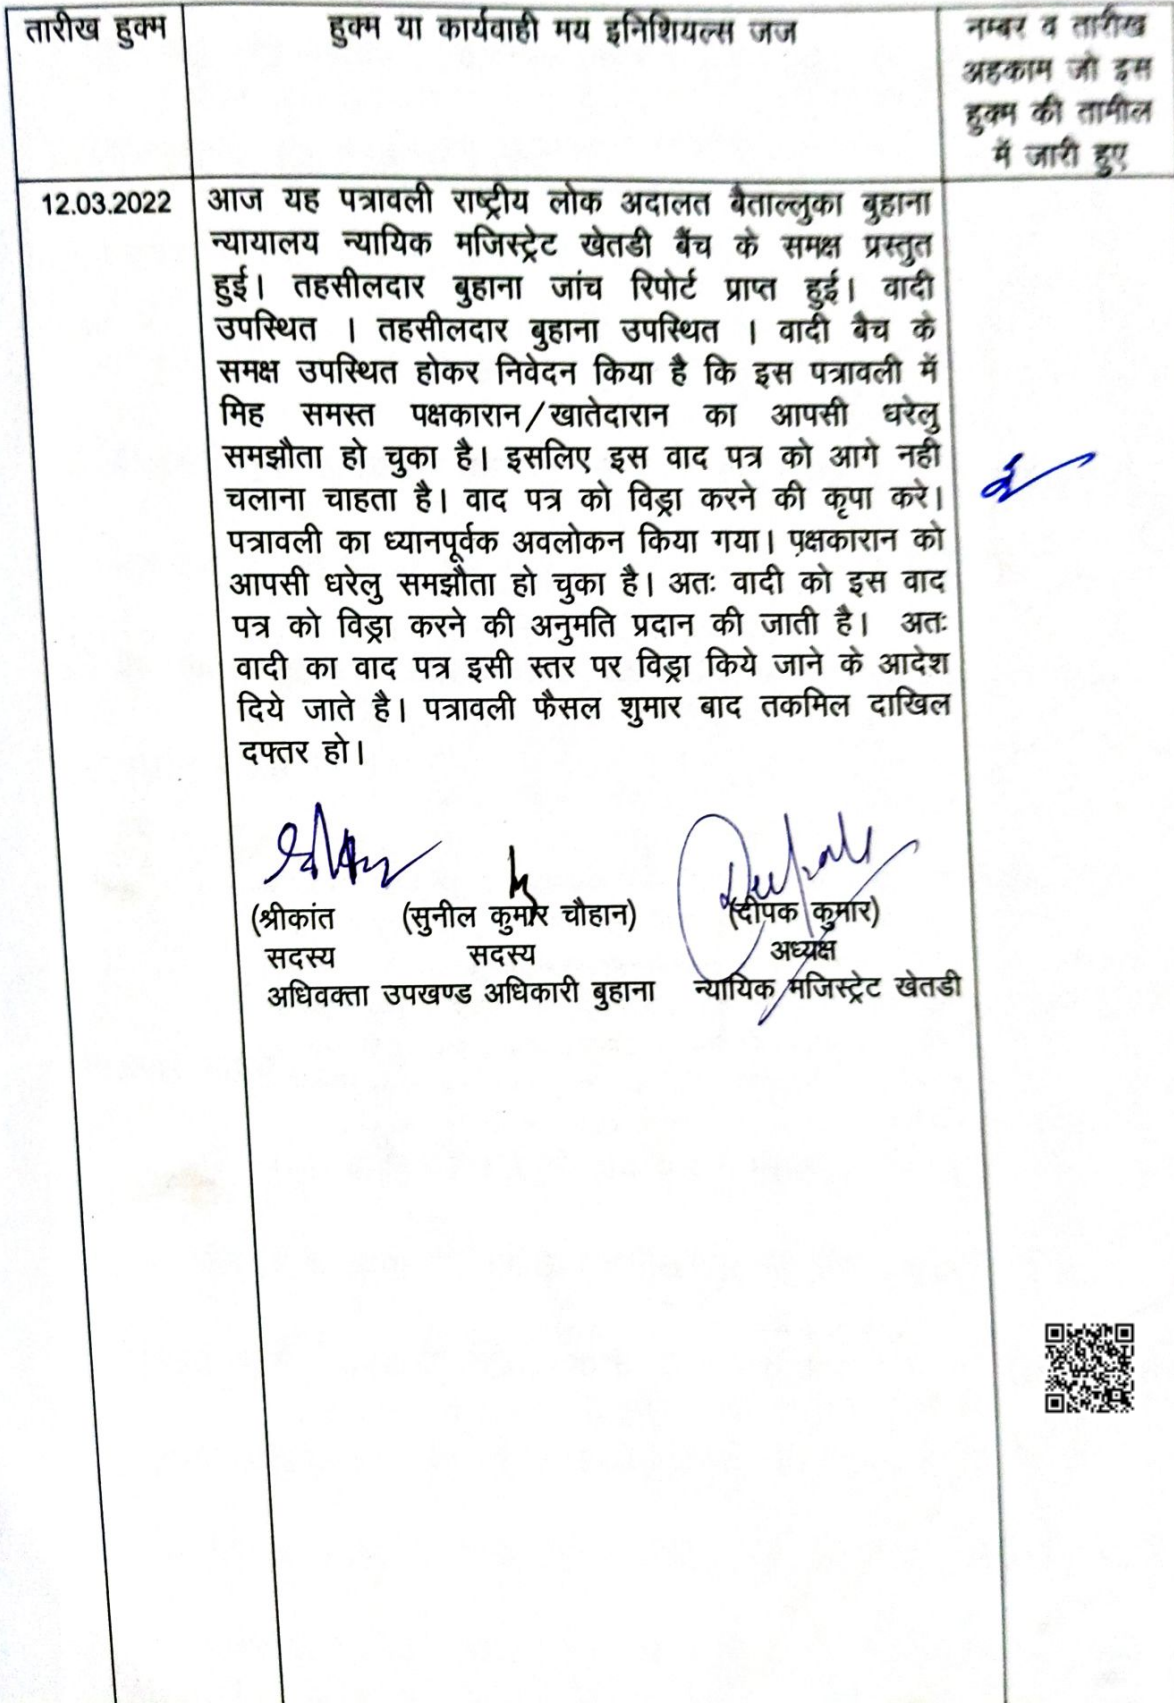 तारीख हुक्म
हुक्म या कार्यवाही मय इनिशियल्स जज
नम्बर व तारीख
अहकाम जो इस
हुक्म की तामील
में जारी हुए
12.03.2022
आज यह पत्रावली राष्ट्रीय लोक अदालत बैताल्लुका बुहाना
न्यायालय न्यायिक मजिस्ट्रेट खेतडी बैंच के समक्ष प्रस्तुत
हुई। तहसीलदार बुहाना जांच रिपोर्ट प्राप्त हुई। वादी
उपस्थित । तहसीलदार बुहाना उपस्थित । वादी बैच के
समक्ष उपस्थित होकर निवेदन किया है कि इस पत्रावली में
मिह समस्त पक्षकारान/खातेदारान का आपसी धरेलु
समझौता हो चुका है। इसलिए इस वाद पत्र को आगे नही
चलाना चाहता है। वाद पत्र को विड्रा करने की कृपा करे।
पत्रावली का ध्यानपूर्वक अवलोकन किया गया। पक्षकारान को
आपसी धरेलु समझौता हो चुका है। अतः वादी को इस वाद
पत्र को विड्रा करने की अनुमति प्रदान की जाती है। अतः
वादी का वाद पत्र इसी स्तर पर विड्रा किये जाने के आदेश
दिये जाते है। पत्रावली फैसल शुमार बाद तकमिल दाखिल
दफ्तर हो।
(श्रीकांत (सुनील कुमार चौहान) (दीपक कुमार)
सदस्य सदस्य अध्यक्ष
अधिवक्ता उपखण्ड अधिकारी बुहाना न्यायिक मजिस्ट्रेट खेतडी